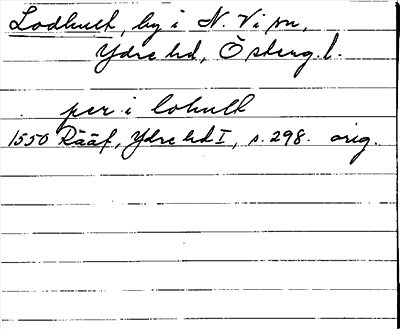 Lodhult, by i N. Vi sn,
Ydre hd, Östergl.
per i lohult
1550 Rääf, Ydre hd I, s. 298. orig.